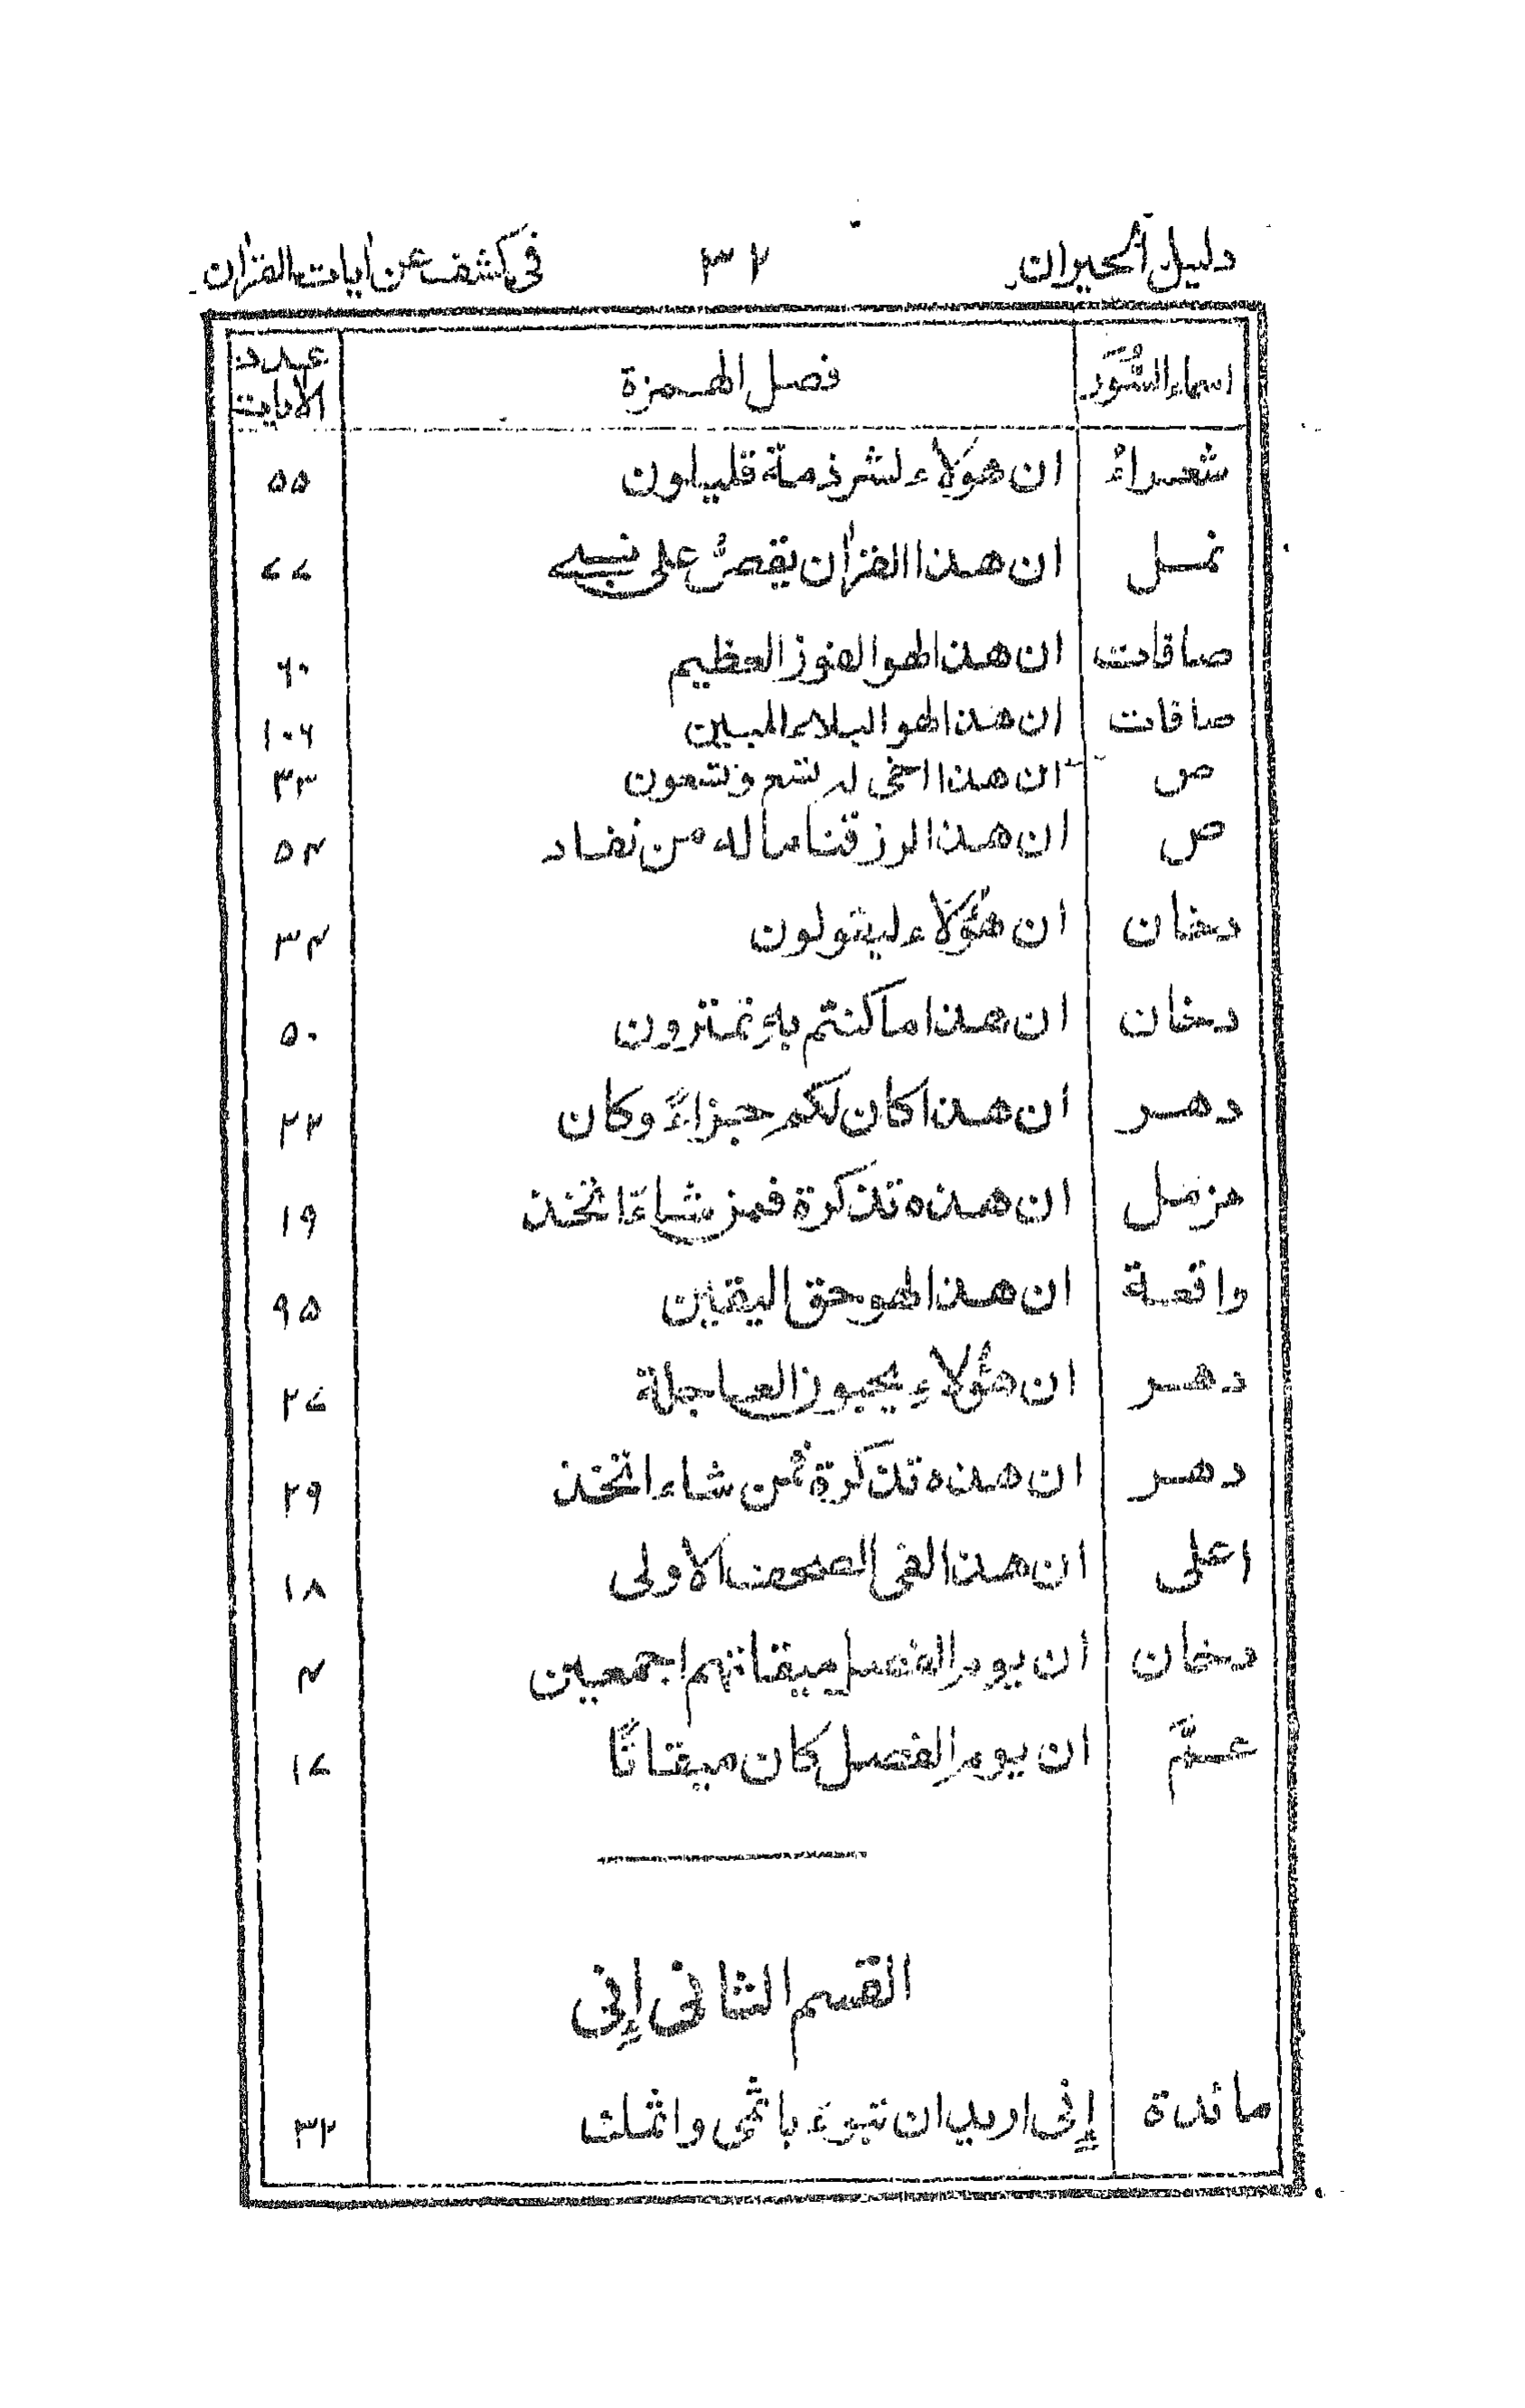 دليل الحيران ٣٢ فى كشف عن اٰيات القراٰن
اسماء السُّوَر فصل الهمزة عدد الاٰيات
شعراء ان هؤلاء لشرذمة قليلون ۵۵
نمل ان هذا القراٰن يقص على بنى ۷۷
صافات ان هذا لهو الفوز العظيم ۶۰
صافات ان هذا لهو البلاء المبين ۱۰۶
ص ان هذا اخى له تسع وتسعون ۳۳
ص ان هذا لرزقنا ماله من نفاد ۵۴
دخان ان هؤلاء ليقولون ۳۴
دخان ان هذا ما كنتم به تمترون ۵۰
دهر ان هذا كان لكم جزاءً وكان ۲۲
مزمل ان هذه تذكرة فمن شاء اتخذ ۱۹
واقعة ان هذا لهو حق اليقين ۹۵
دهر ان هؤلاء يحبون العاجلة ۲۷
دهر ان هذه تذكرة فمن شاء اتخذ ۲۹
اعلى ان هذا لفى الصحف الاولى ۱۸
دخان ان يوم الفصل ميقاتهم اجمعين ۴
عمَّ ان يوم الفصل كان ميقاتًا ۱۷
القسم الثانى إنى
مائدة إنى اريد ان تبوء باثمى واثمك ۳۲